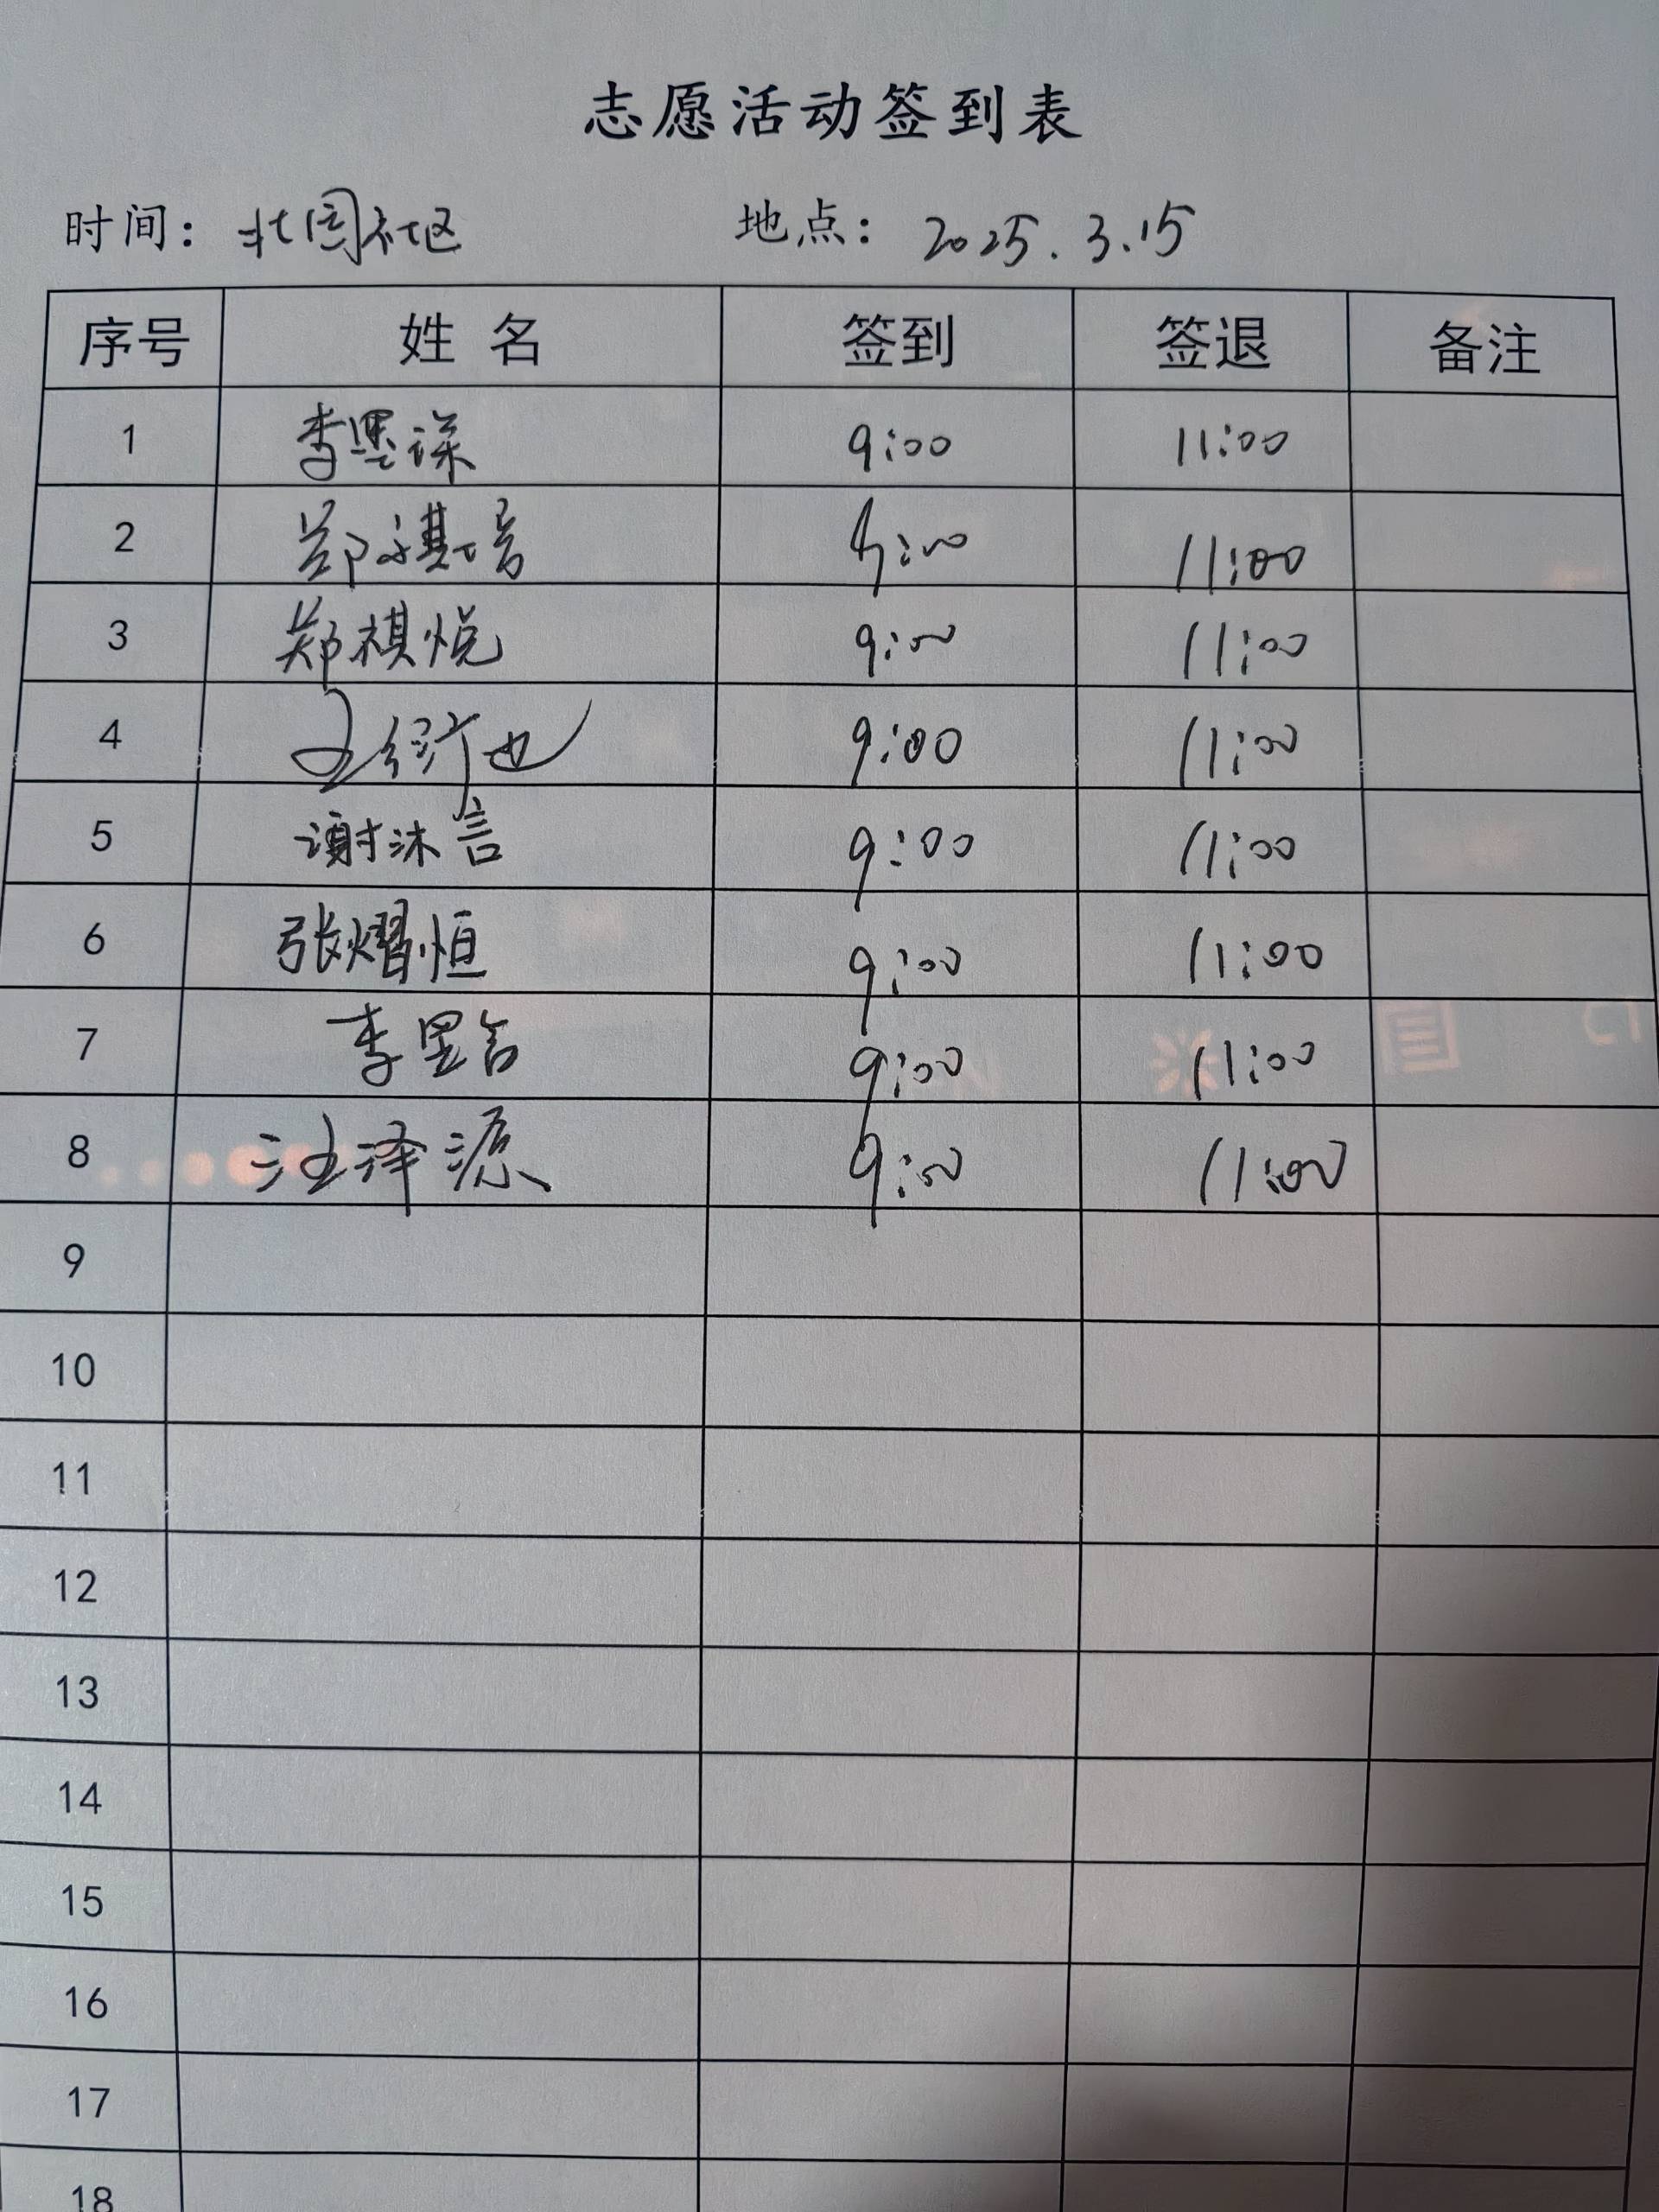 志愿活动签到表
时间：北园社区 地点：2025.3.15
序号 姓名 签到 签退 备注
1 李墨深 9:00 11:00
2 郑祺音 9:00 11:00
3 郑祺悦 9:00 11:00
4 王衍也 9:00 11:00
5 谢沐言 9:00 11:00
6 张熠恒 9:00 11:00
7 李昱言 9:00 11:00
8 汪泽源 9:00 11:00
9
10
11
12
13
14
15
16
17
18